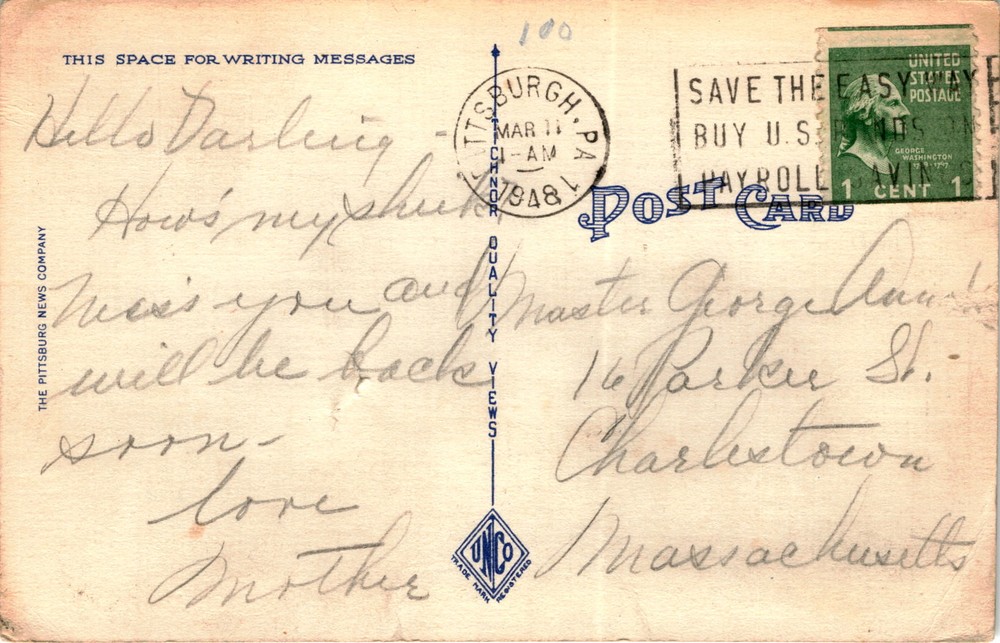 100
THIS SPACE FOR WRITING MESSAGES
Hello Darling -
How's my
Miss you and
will be back
soon -
love
Mother
THE PITTSBURG NEWS COMPANY
TICHNOR QUALITY VIEWS
UNCO
TRADE MARK REGISTERED
PITTSBURGH, PA
MAR 11
1-AM
1948
SAVE THE EASY WAY
BUY U.S. BONDS ON
PAYROLL SAVINGS
UNITED
STATES
POSTAGE
GEORGE
WASHINGTON
1 CENT 1
POST CARD
Master George
16 Parker St.
Charlestown
Massachusetts